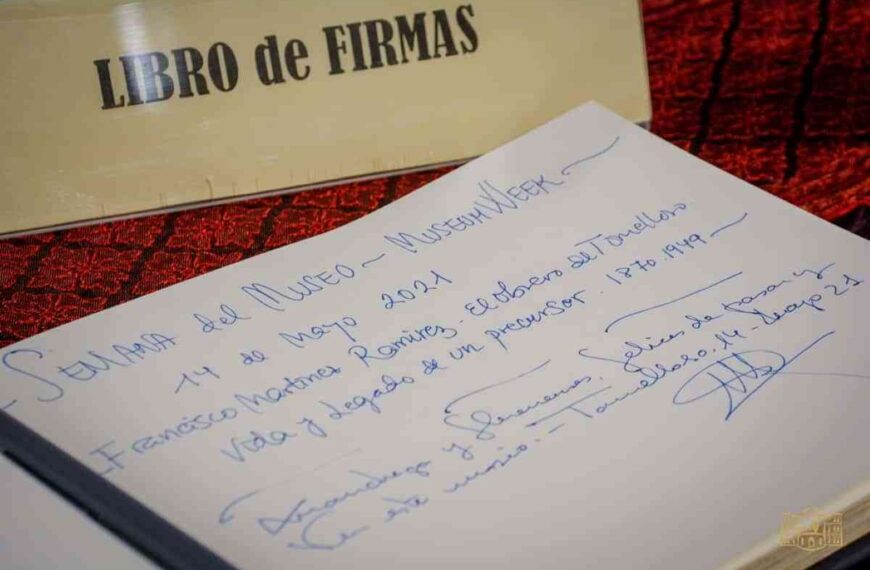 LIBRO de FIRMAS
- SEMANA del MUSEO ~ MUSEUM WEEK ~
14 de Mayo 2021
- Francisco Martínez Ramírez. El Obrero de Tomelloso
Vida y Legado de un precursor. 1870-1949 -
y felices de pasar y
ver este museo. - Tomelloso, 14 - Mayo 21